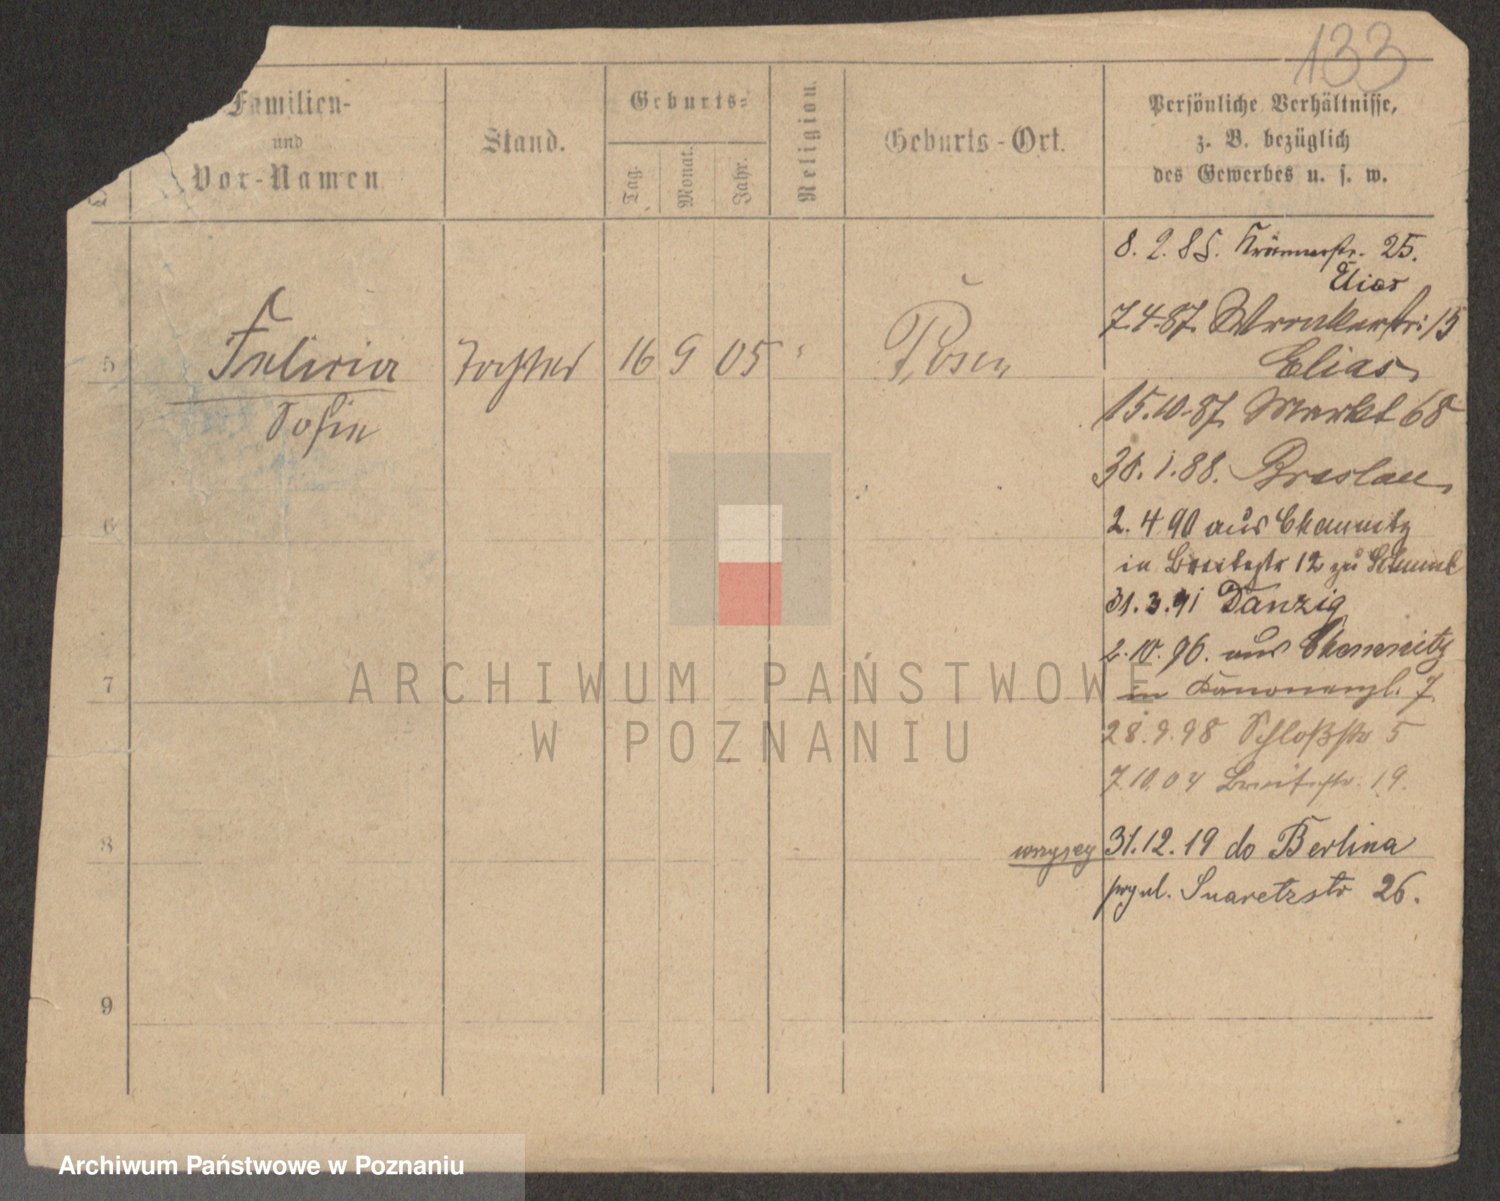 133
Familien-
und
Vor-Namen
Stand.
Geburts-
Tag.
Monat.
Jahr.
Religion.
Geburts-Ort.
Persönliche Verhältnisse,
z. B. bezüglich
des Gewerbes u. s. w.
8. 2. 85. Krämerstr. 25.
Elias
7.4.87. Wronkerstr: 15
Elias
5 Felicia Tochter 16 9 05 " Posen
Sofie
15.10.87. Markt 68
30. 1. 88. Breslau
6
2. 4 90 aus Chemnitz
in Breitestr 12 zu
31. 3. 91 Danzig
2. 10. 96. aus Chemnitz
7
in Kanonenpl. 7
28. 9. 98 Schloßstr 5
7.10.04 Breitestr. 19.
8
wszyscy 31. 12. 19 do Berlina
Suaretzstr 26.
9
ARCHIWUM PAŃSTWOWE
W POZNANIU
Archiwum Państwowe w Poznaniu